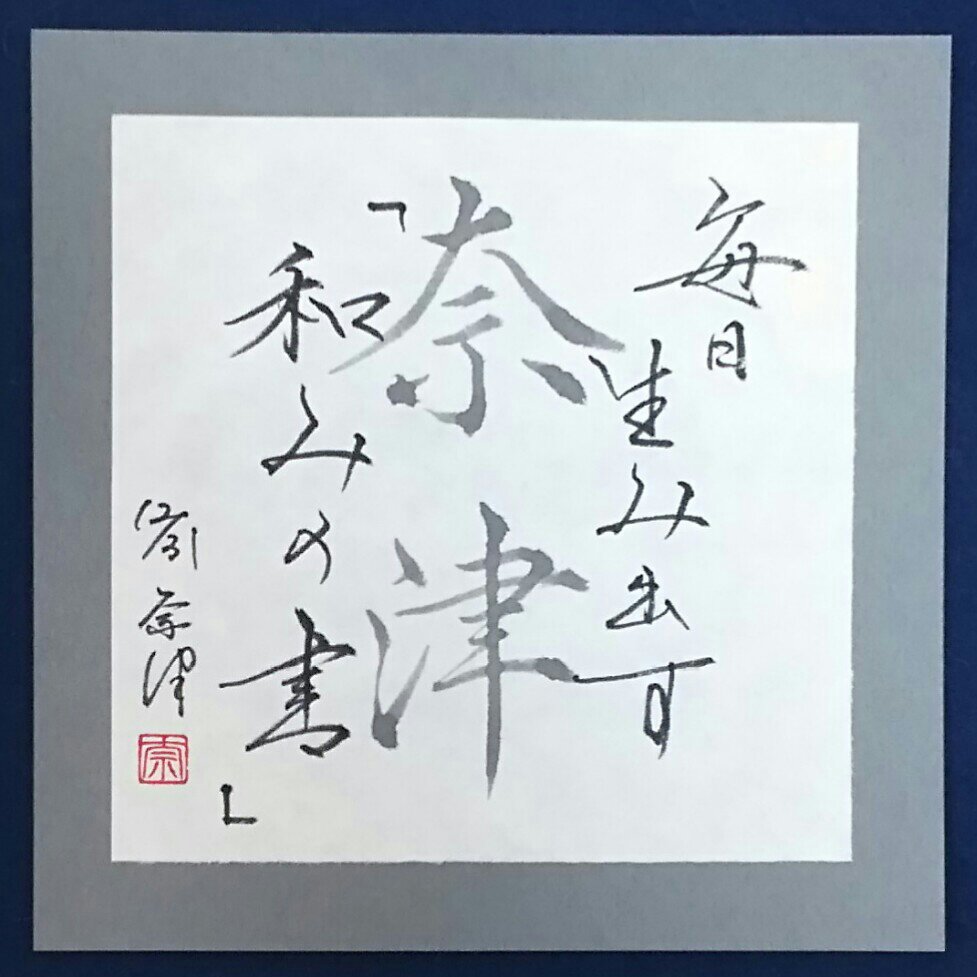 毎日
生み出す
奈津
「和みの書」
奈津
奈